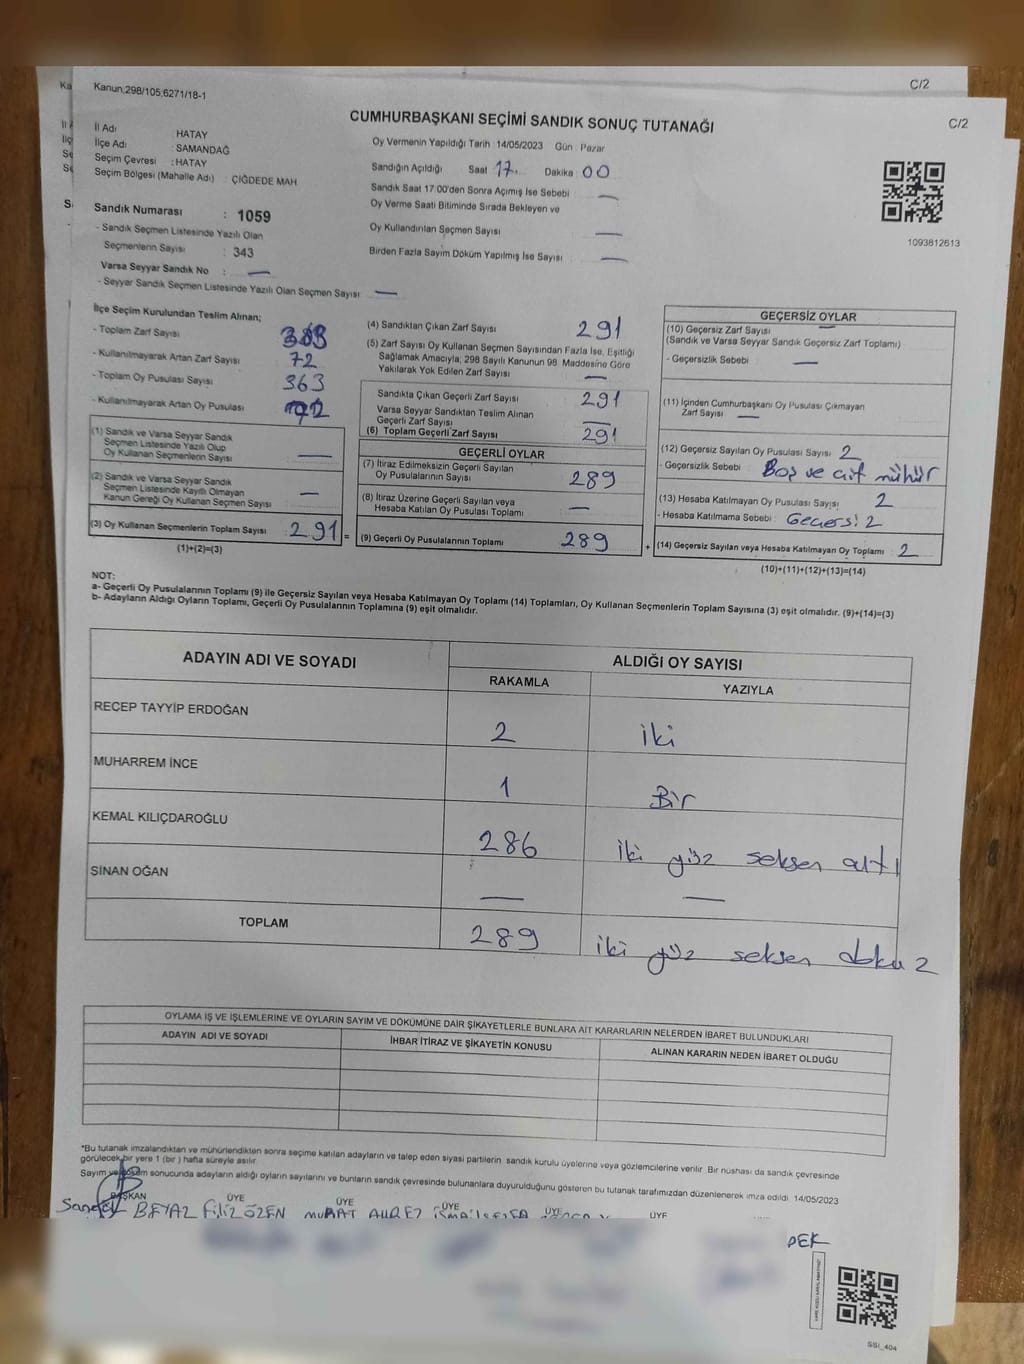 C/2
Kanun;298/105;6271/18-1
CUMHURBAŞKANI SEÇİMİ SANDIK SONUÇ TUTANAĞI
C/2
İl Adı HATAY
İlçe Adı SAMANDAĞ
Seçim Çevresi : HATAY
Seçim Bölgesi (Mahalle Adı) : ÇİĞDEDE MAH
Sandık Numarası : 1059
- Sandık Seçmen Listesinde Yazılı Olan
Seçmenlerin Sayısı : 343
Varsa Seyyar Sandık No : —
- Seyyar Sandık Seçmen Listesinde Yazılı Olan Seçmen Sayısı —
Oy Vermenin Yapıldığı Tarih : 14/05/2023 Gün : Pazar
Sandığın Açıldığı Saat 17 Dakika 00
Sandık Saat 17:00'den Sonra Açımış İse Sebebi —
Oy Verme Saati Bitiminde Sırada Bekleyen ve
Oy Kullandırılan Seçmen Sayısı —
Birden Fazla Sayım Döküm Yapılmış İse Sayısı —
1093812613
İlçe Seçim Kurulundan Teslim Alınan;
- Toplam Zarf Sayısı
- Kullanılmayarak Artan Zarf Sayısı 72
- Toplam Oy Pusulası Sayısı 363
- Kullanılmayarak Artan Oy Pusulası
(1) Sandık ve Varsa Seyyar Sandık
Seçmen Listesinde Yazılı Olup
Oy Kullanan Seçmenlerin Sayısı —
(2) Sandık ve Varsa Seyyar Sandık
Seçmen Listesinde Kayıtlı Olmayan
Kanun Gereği Oy Kullanan Seçmen Sayısı —
(3) Oy Kullanan Seçmenlerin Toplam Sayısı 291 =
(1)+(2)=(3)
(4) Sandıktan Çıkan Zarf Sayısı 291
(5) Zarf Sayısı Oy Kullanan Seçmen Sayısından Fazla İse, Eşitliği
Sağlamak Amacıyla, 298 Sayılı Kanunun 98. Maddesine Göre
Yakılarak Yok Edilen Zarf Sayısı —
Sandıkta Çıkan Geçerli Zarf Sayısı 291
Varsa Seyyar Sandıktan Teslim Alınan
Geçerli Zarf Sayısı —
(6) Toplam Geçerli Zarf Sayısı 291
GEÇERLİ OYLAR
(7) İtiraz Edilmeksizin Geçerli Sayılan
Oy Pusulalarının Sayısı 289
(8) İtiraz Üzerine Geçerli Sayılan veya
Hesaba Katılan Oy Pusulası Toplamı —
(9) Geçerli Oy Pusulalarının Toplamı 289 +
GEÇERSİZ OYLAR
(10) Geçersiz Zarf Sayısı —
(Sandık ve Varsa Seyyar Sandık Geçersiz Zarf Toplamı)
- Geçersizlik Sebebi : —
(11) İçinden Cumhurbaşkanı Oy Pusulası Çıkmayan
Zarf Sayısı —
(12) Geçersiz Sayılan Oy Pusulası Sayısı 2
- Geçersizlik Sebebi : Boş ve çift mühür
(13) Hesaba Katılmayan Oy Pusulası Sayısı 2
- Hesaba Katılmama Sebebi : Geçersiz
(14) Geçersiz Sayılan veya Hesaba Katılmayan Oy Toplamı 2
(10)+(11)+(12)+(13)=(14)
NOT:
a- Geçerli Oy Pusulalarının Toplamı (9) ile Geçersiz Sayılan veya Hesaba Katılmayan Oy Toplamı (14) Toplamları, Oy Kullanan Seçmenlerin Toplam Sayısına (3) eşit olmalıdır. (9)+(14)=(3)
b- Adayların Aldığı Oyların Toplamı, Geçerli Oy Pusulalarının Toplamına (9) eşit olmalıdır.
ADAYIN ADI VE SOYADI ALDIĞI OY SAYISI
RAKAMLA YAZIYLA
RECEP TAYYİP ERDOĞAN 2 iki
MUHARREM İNCE 1 Bir
KEMAL KILIÇDAROĞLU 286 iki yüz seksen altı
SİNAN OĞAN — —
TOPLAM 289 iki yüz seksen dokuz
OYLAMA İŞ VE İŞLEMLERİNE VE OYLARIN SAYIM VE DÖKÜMÜNE DAİR ŞİKAYETLERLE BUNLARA AİT KARARLARIN NELERDEN İBARET BULUNDUKLARI
ADAYIN ADI VE SOYADI İHBAR İTİRAZ VE ŞİKAYETİN KONUSU ALINAN KARARIN NEDEN İBARET OLDUĞU
*Bu tutanak imzalandıktan ve mühürlendikten sonra seçime katılan adayların ve talep eden siyasi partilerin sandık kurulu üyelerine veya gözlemcilerine verilir. Bir nüshası da sandık çevresinde
görülecek bir yere 1 (bir) hafta süreyle asılır.
Sayım ve döküm sonucunda adayların aldığı oyların sayılarını ve bunların sandık çevresinde bulunanlara duyurulduğunu gösteren bu tutanak tarafımızdan düzenlenerek imza edildi. 14/05/2023
BAŞKAN ÜYE ÜYE ÜYE ÜYE ÜYE
BEYAZ Filiz ÖZEN MURAT
SSI_404